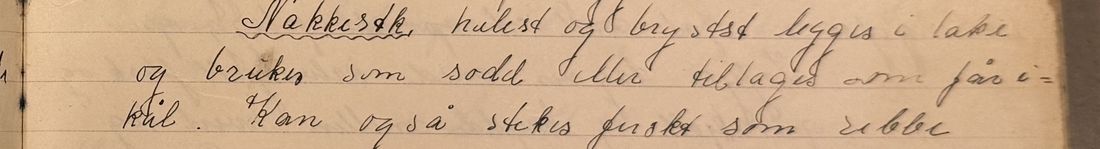 Nakkestk, halest og brystst legges i lake
og brukes som sodd eller tillages som får i=
kål. Kan også stekes ferskt som ribbe